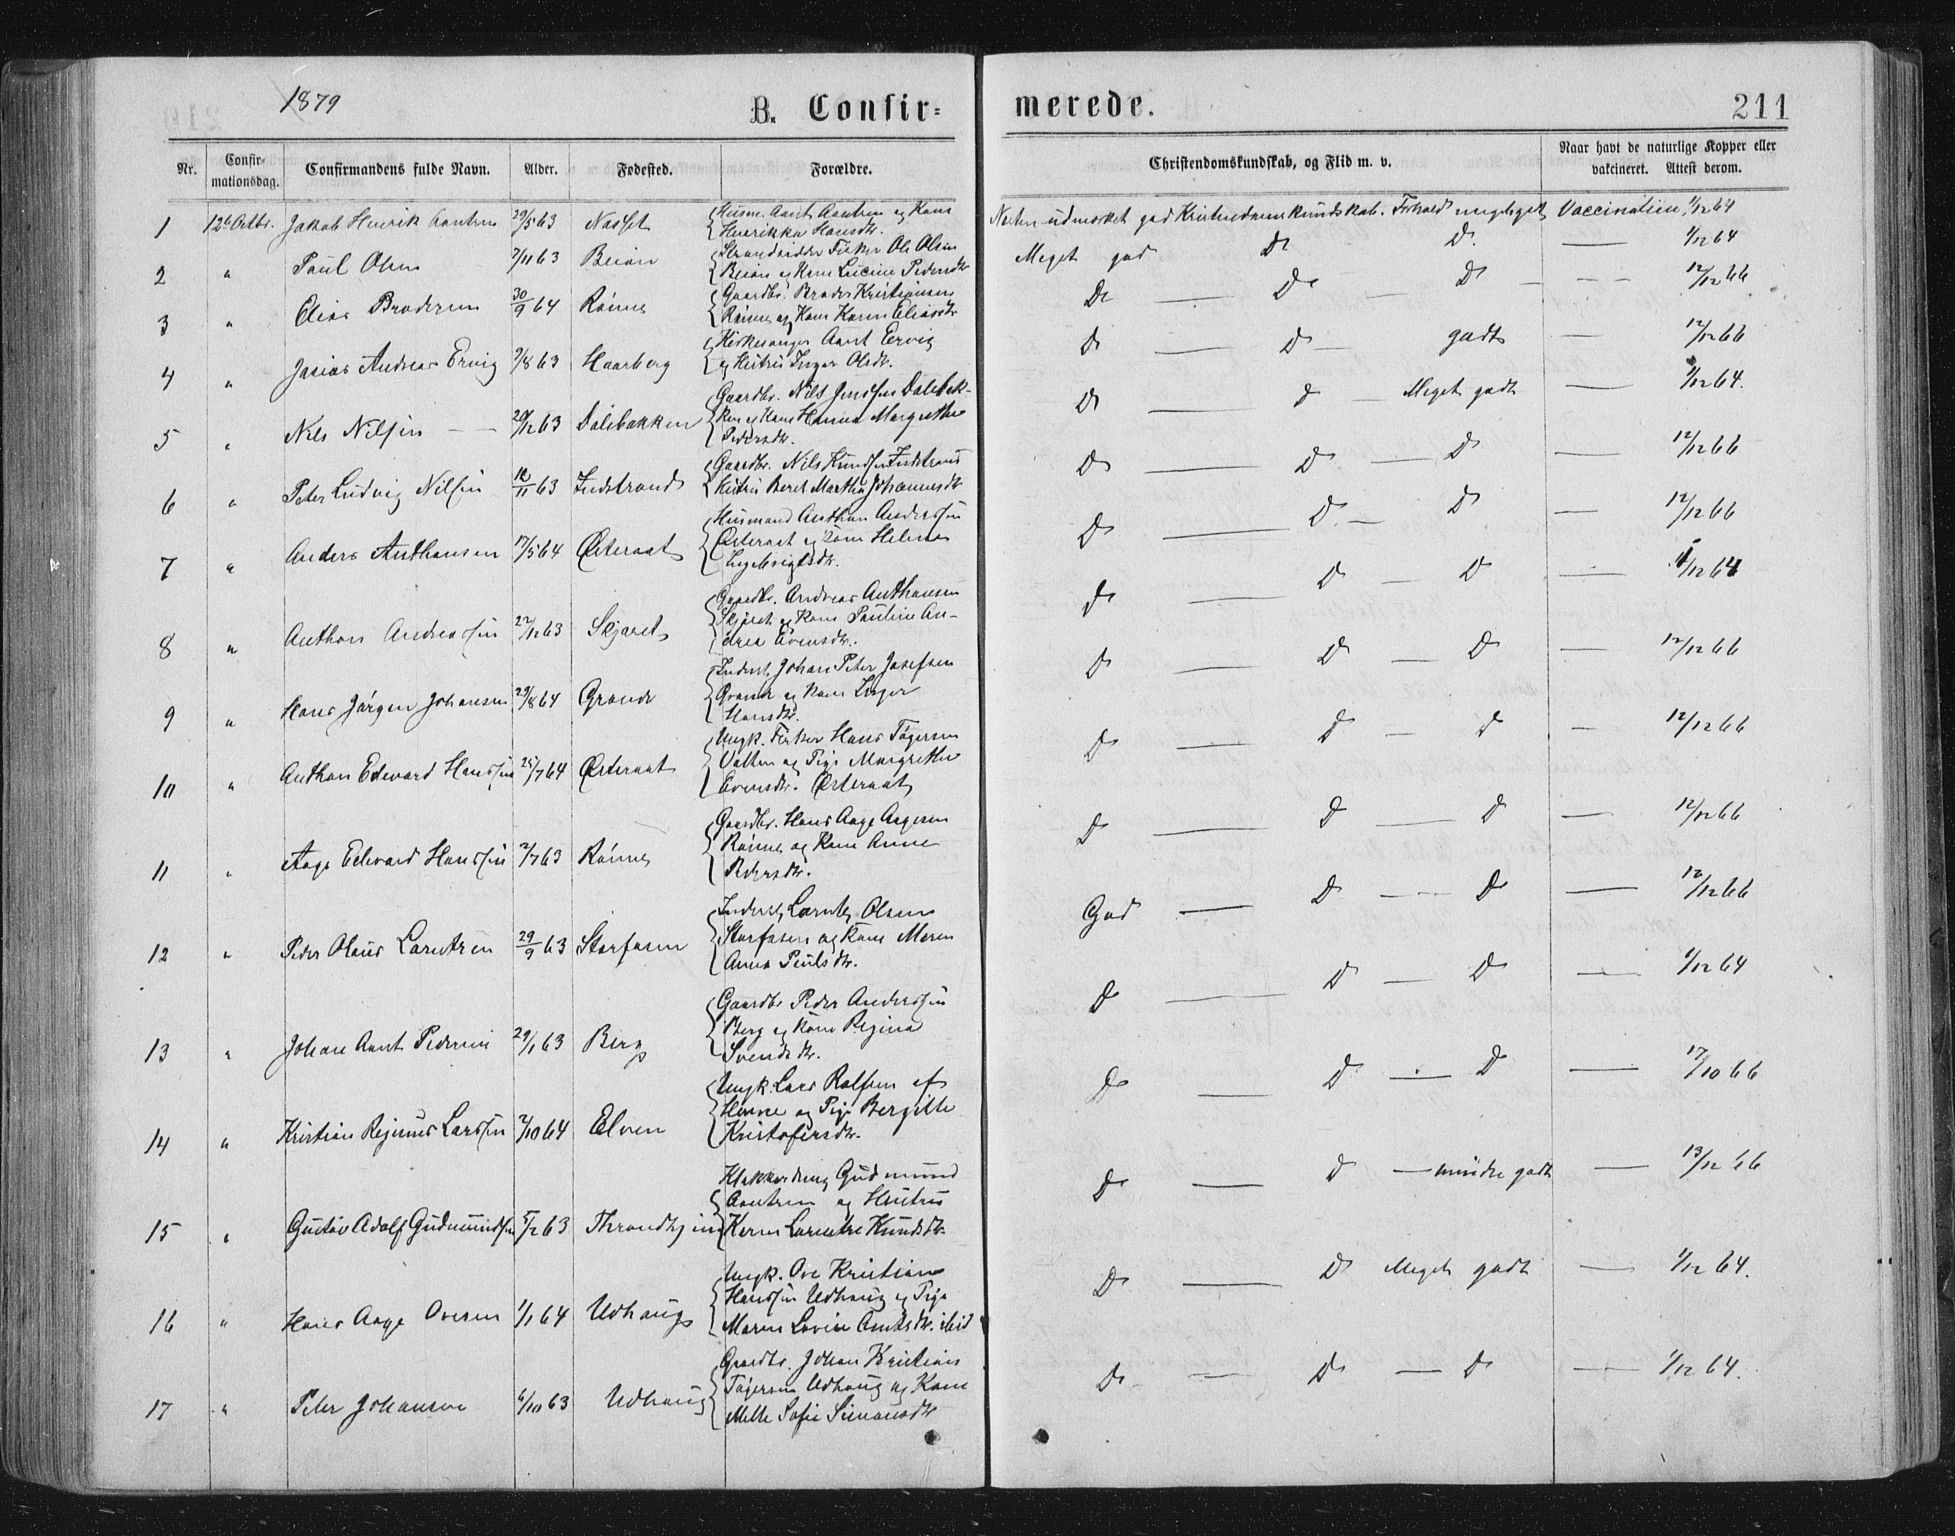 1879
B. Confir=
merede.
211
Nr.
Confir-
mationsdag.
Confirmandens fulde Navn.
Alder.
Fødested.
Forældre.
Christendomskundskab, og Flid m. v.
Naar havt de naturlige Kopper eller
vakcineret. Attest derom.
1 12te Octbr. Jakob Henrik 29/5 63
Husm. Aant og Kone
Hansdtr.
udmærket god Kristendomskundskab. Forhold meget Vaccination 1/12 64
2 " Paul Olsen 7/11 63 Beian
Strandsidder Fisker Ole Olsen
Beian og Kone Lucine Pedersdtr
Meget god Do Do — 1/12 64
3 " Elias Brodersen 30/9 64 Rønne
Gaardbr. Broder Kristiansen
Rønne og Kone Karen Eliasdtr
Do — Do — Do — 12/12 66
4 " Jasias Andreas Ervig 9/8 63 Haarberg
Kirkesanger Aant Ervig
og Hustru Inger Olsdtr.
Do — Do — godt — 12/12 66
5 " Nils Nilsen — 20/12 63 Dalebakken
Gaardbr. Nils Jensen Dalebak-
ken og Kone Hanna Margrethe
Pedersdtr.
Do — Do — Meget godt — 1/12 64.
6 " Peter Ludvig Nilsen 12/11 63 Indstrand
Gaardbr. Nils Knudsen Indstrand
Hustru Beret Martha Johannesdtr
Do — Do — Do — 12/12 66
7 " Anders Anthonsen 17/5 64 Østeraat
Husmand Anthon Anderssen
Østeraat og Kone Helena
Ingebrigtsdtr.
Do — Do — Do — 12/12 66
8 " Anthon Andreassen 22/12 63 Skjæret
Gaardbr. Andreas Anthonsen
Skjæret og Kone Pauline An-
drea Evensdtr.
Do — Do — Do — 1/12 64
9 " Hans Jørgen Johansen 29/8 64 Grande
Inderst Johan Peter Josefsen
Grande og Kone Inger
Hansdtr.
Do — Do — Do — 12/12 66
10 " Anthon Edvard Hanssen 25/7 64 Østeraat
Ungk. Fisker Hans Tøgersen
og Pige Margrethe
Evensdtr. Østeraat
Do — Do — Do — 12/12 66
11 " Aage Edvard Hanssen 2/7 63 Rønne
Gaardbr. Hans Aage Aagesen
Rønne og Kone Anne
Pedersdtr.
Do — Do — Do — 12/12 66
12 " Peder Olaus Larentsen 29/9 63 Storfosen
Inderst Larents Olsen
Storfosen og Kone Maren
Anna Paulsdtr.
God — Do — Do — 12/12 66
13 " Johan Aant Pedersen 29/1 63 Berg
Gaardbr Peder Anderssen
Berg og Kone Regina
Svendsdtr.
Do — Do — Do — 1/12 64
14 " Kristian Larssen 7/10 64 Elven
Ungk. Lars Rolfsen af
og Pige Bergitte
Kristofersdtr.
Do — Do — Do — 17/10 66
15 " Gustav Adolf Gudmundsen 5/12 63 Throndhjem
Gudmund
Aantsen og Hustru
Karen Larentze Knudsdtr.
Do — Do — mindre godt — 13/12 66
16 " Hans Aage Ovesen 1/1 64 Udhaug
Ungk. Ove Kristian
Hanssen Udhaug og Pige
Maren Lovise Aantsdtr. ibid
Do — Do Meget godt — 1/12 64.
17 " Peter Johansen 6/10 63 Udhaug
Gaardbr. Johan Kristian
Tøgersen Udhaug og Kone
Mette Sofie Simonsdtr
Do — Do — Do — 1/12 64.